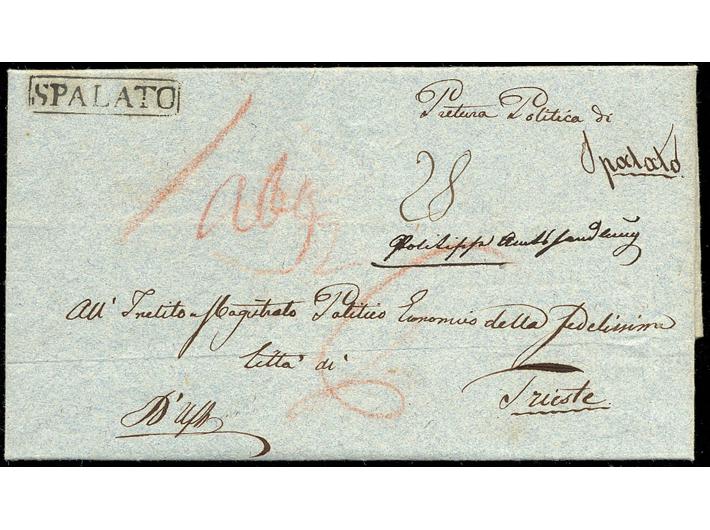 SPALATO
Pretura Politica di
Spalato
28
Politische Amtshandlung
All' Inclito Magistrato Politico Economico della fedelissima
Città di
Trieste
D'Uff